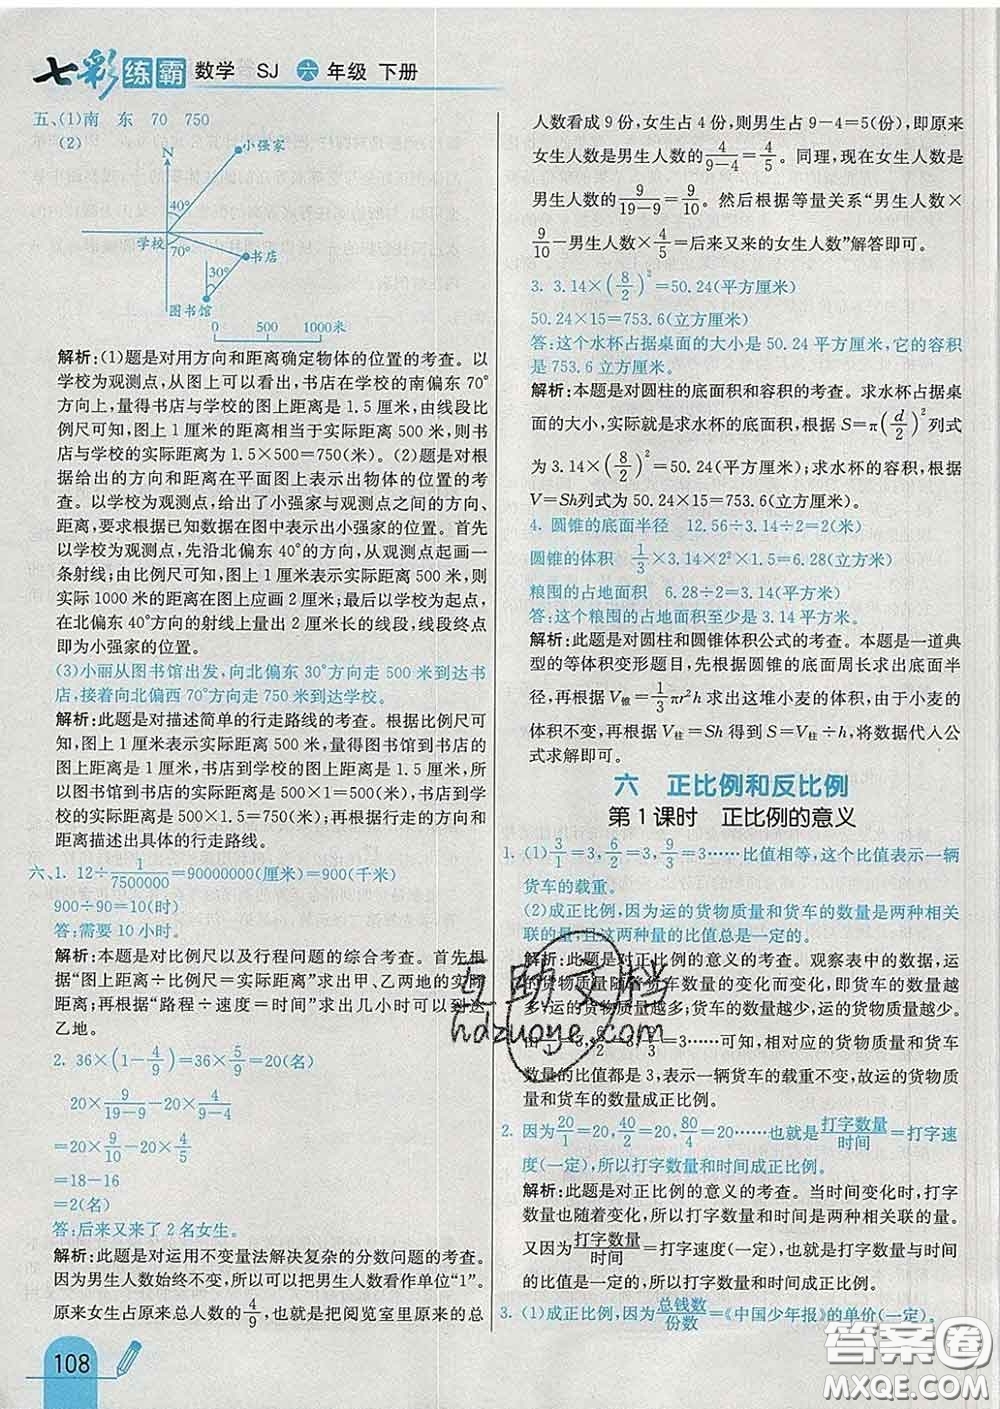 七彩练霸 数学 SJ 六年级 下册
五、(1)南 东 70 750
(2)
N
小强家
40°
学校
70°
书店
30°
图书馆
0 500 1000米
解析:(1)题是对用方向和距离确定物体的位置的考查。以
学校为观测点,从图上可以看出,书店在学校的南偏东70°
方向上,量得书店与学校的图上距离是1.5厘米,由线段比
例尺可知,图上1厘米的距离相当于实际距离500米,则书
店与学校的实际距离为1.5×500=750(米)。(2)题是对根
据给出的方向和距离在平面图上表示出物体的位置的考
查。以学校为观测点,给出了小强家与观测点之间的方向、
距离,要求根据已知数据在图中表示出小强家的位置。首先
以学校为观测点,先沿北偏东40°的方向,从观测点起画一
条射线;由比例尺可知,图上1厘米表示实际距离500米,则
实际1000米的距离在图上应画2厘米;最后以学校为起点,
在北偏东40°方向的射线上量出2厘米长的线段,线段终点
即为小强家的位置。
(3)小丽从图书馆出发,向北偏东30°方向走500米到达书
店,接着向北偏西70°方向走750米到达学校。
解析:此题是对描述简单的行走路线的考查。根据比例尺可
知,图上1厘米表示实际距离500米,量得图书馆到书店的
图上距离是1厘米,书店到学校的图上距离是1.5厘米,所
以图书馆到书店的实际距离是500米,书店到学校的实际距
离是1.5×500=750(米);再根据行走的方向和实际
距离描述出具体的行走路线。
六、1. 12÷1/7500000=90000000(厘米)=900(千米)
900÷90=10(时)
答:需要10小时。
解析:本题是对比例尺以及行程问题的综合考查。首先根
据“图上距离÷比例尺=实际距离”求出甲、乙两地的实际
距离;再根据“路程÷速度=时间”求出几小时可以到达
乙地。
2. 36×(1-4/9)=36×5/9=20(名)
20×9/(19-9)-20×4/(9-4)
=20×9/10-20×4/5
=18-16
=2(名)
答:后来又来了2名女生。
解析:此题是对运用不变量法解决复杂的分数问题的考查。
因为男生人数始终不变,所以可以把男生人数看作单位“1”。
原来女生占原来总人数的4/9,也就是把阅览室里原来的总
108
人数看成9份,女生占4份,则男生占9-4=5(份),即原来
女生人数是男生人数的4/(9-4)=4/5。同理,现在女生人数是
男生人数的9/(19-9)=9/10。然后根据等量关系“男生人数×
9/10-男生人数×4/5=后来又来的女生人数”解答即可。
3. 3.14×(8/2)²=50.24(平方厘米)
50.24×15=753.6(立方厘米)
答:这个水杯占据桌面的大小是50.24平方厘米,它的容积
是753.6立方厘米。
解析:本题是对圆柱的底面积和容积的考查。求水杯占据桌
面的大小,实际就是求水杯的底面积,根据S=π(d/2)²列式
为3.14×(8/2)²=50.24(平方厘米);求水杯的容积,根据
V=Sh列式为50.24×15=753.6(立方厘米)。
4. 圆锥的底面半径 12.56÷3.14÷2=2(米)
圆锥的体积 1/3×3.14×2²×1.5=6.28(立方米)
粮囤的占地面积 6.28÷2=3.14(平方米)
答:这个粮囤的占地面积至少是3.14平方米。
解析:此题是对圆柱和圆锥体积公式的考查。本题是一道典
型的等体积变形题目,先根据圆锥的底面周长求出底面半
径,再根据V锥=1/3πr²h求出这堆小麦的体积,由于小麦的
体积不变,再根据V柱=Sh得到S=V柱÷h,将数据代入公
式求解即可。
六 正比例和反比例
第1课时 正比例的意义
1. (1)3/1=3,6/2=3,9/3=3……比值相等,这个比值表示一辆
货车的载重。
(2)成正比例,因为运的货物质量和货车的数量是两种相关
联的量,且这两种量的比值总是一定的。
解析:此题是对正比例的意义的考查。观察表中的数据,运
的货物质量随着货车数量的变化而变化,即货车的数量越
多,运的货物质量越多;货车的数量越少,运的货物质量越少。
由3/1=3,6/2=3,9/3=3……可知,相对应的货物质量与货车
数量的比值都是3,表示一辆货车的载重不变,故运的货物质
量和货车的数量成正比例。
2. 因为20/1=20,40/2=20,80/4=20……也就是打字数量/时间=打字速
度(一定),所以打字数量和时间成正比例。
解析:此题是对正比例的意义的考查。当时间变化时,打字
数量也随着变化,所以打字数量和时间是两种相关联的量。
又因为打字数量/时间=打字速度(一定),所以打字数量与时间
的比值一定,所以打字数量和时间成正比例。
3. (1)成正比例,因为总钱数/份数=《中国少年报》的单价(一定)。
互助文档
hdzuoye.com
答案圈
MXQE.COM